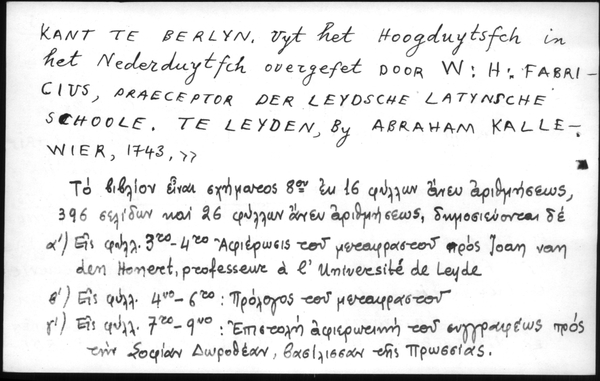 KANT TE BERLYN. Vyt het Hoogduytsch in
het Nederduytsch overgeset DOOR W: H: FABRI-
CIUS, PRAECEPTOR DER LEYDSCHE LATYNSCHE
SCHOOLE. TE LEYDEN, By ABRAHAM KALLE-
WIER, 1743, >>
Τὸ βιβλίον εἶναι σχήματος 8ου ἐκ 16 φύλλων ἄνευ ἀριθμήσεως,
396 σελίδων καὶ 26 φύλλων ἄνευ ἀριθμήσεως, δημοσιεύονται δέ
α') Εἰς φύλλ. 3ro-4ro Ἀφιέρωσις τοῦ μεταφραστοῦ πρὸς Joan van
den Honert, professeur à l'Université de Leyde
β') Εἰς φύλλ. 4vo-6ro: Πρόλογος τοῦ μεταφραστοῦ
γ') Εἰς φύλλ. 7ro-9vo: Ἐπιστολὴ ἀφιερωτικὴ τοῦ συγγραφέως πρὸς
τὴν Σοφίαν Δωροθέαν, βασίλισσαν τῆς Πρωσσίας.